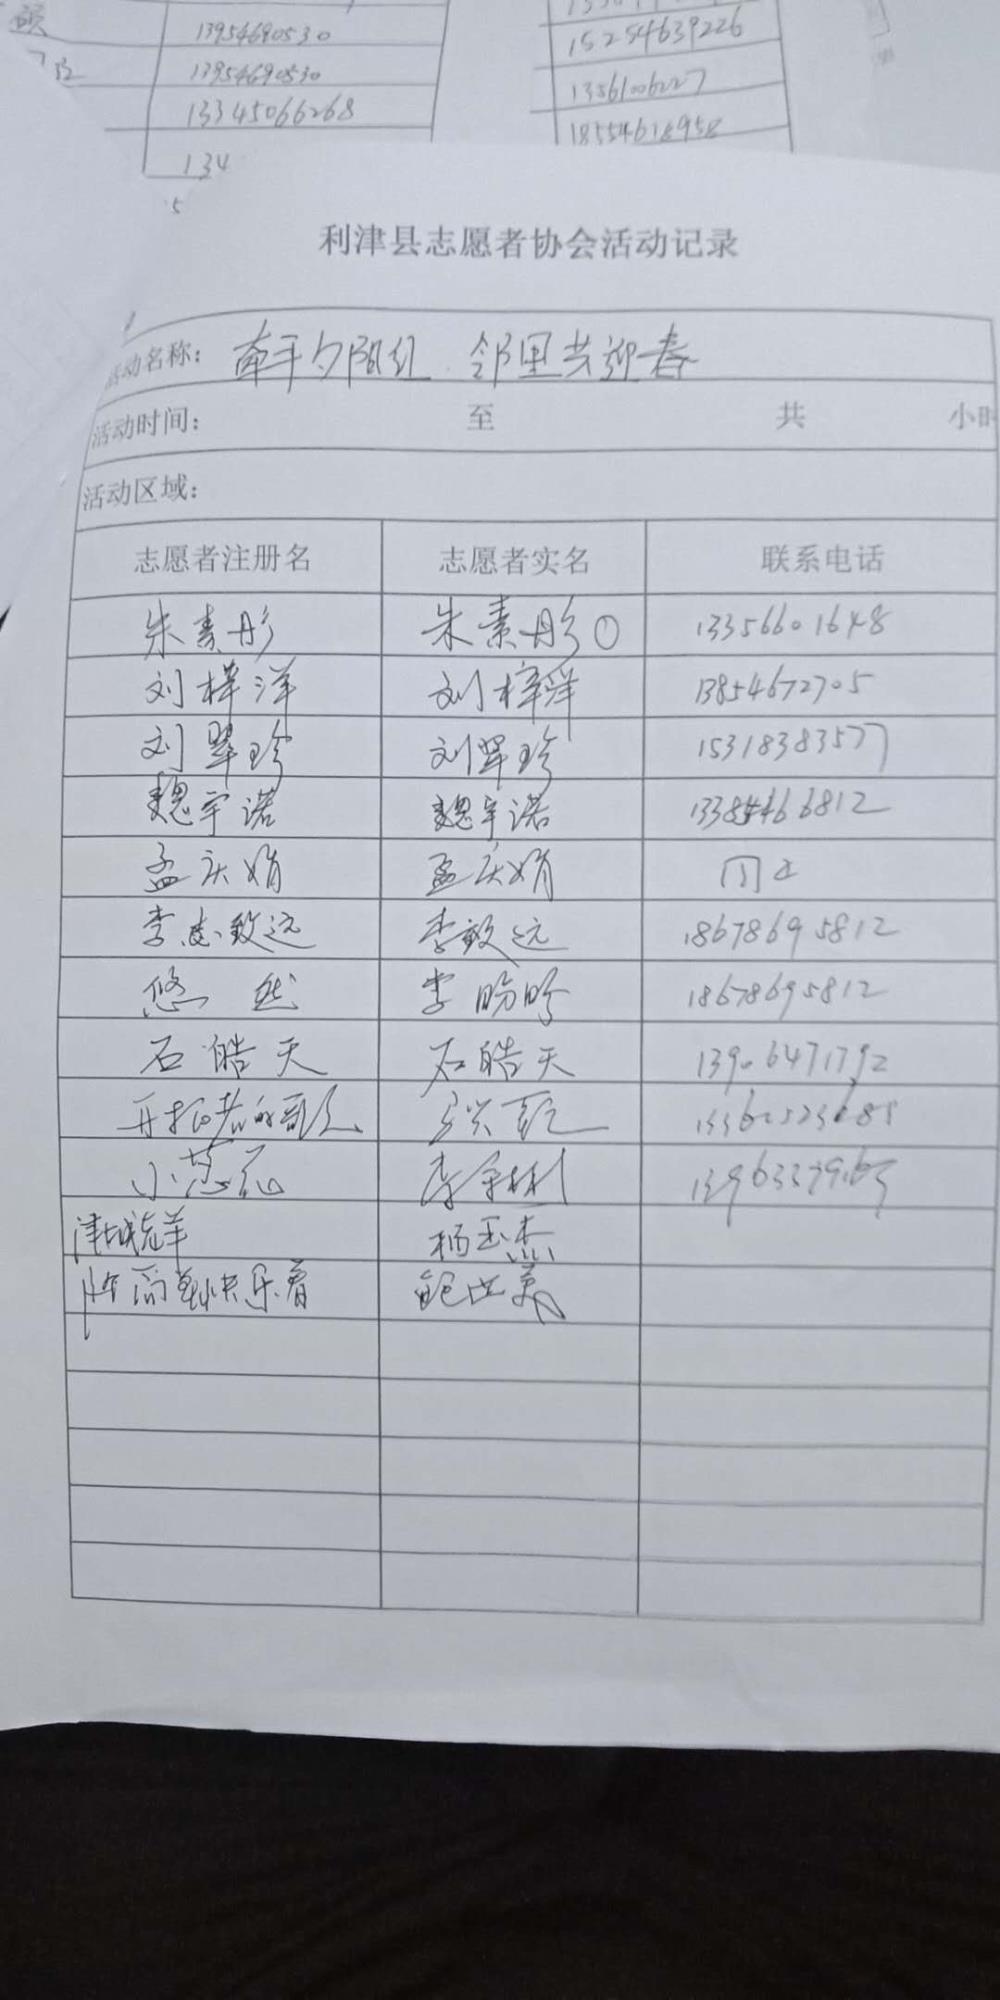 13954690530
15254639226
13954690530
13561006227
13345066268
18554618958
134
利津县志愿者协会活动记录
活动名称: 牵手夕阳红 邻里共迎春
活动时间: 至 共 小时
活动区域:
志愿者注册名 志愿者实名 联系电话
朱素彤 朱素彤① 13356601648
刘梓洋 刘梓洋 13854672705
刘翠珍 刘翠珍 15318383577
魏宇诺 魏宇诺 13385466812
孟庆娟 孟庆娟 同上
李志致远 李致远 18678695812
悠然 李盼盼 18678695812
石皓天 石皓天 13906471792
开拓者的歌
小葱花
津城羌羊 杨玉杰
简单快乐着 鲍洪英